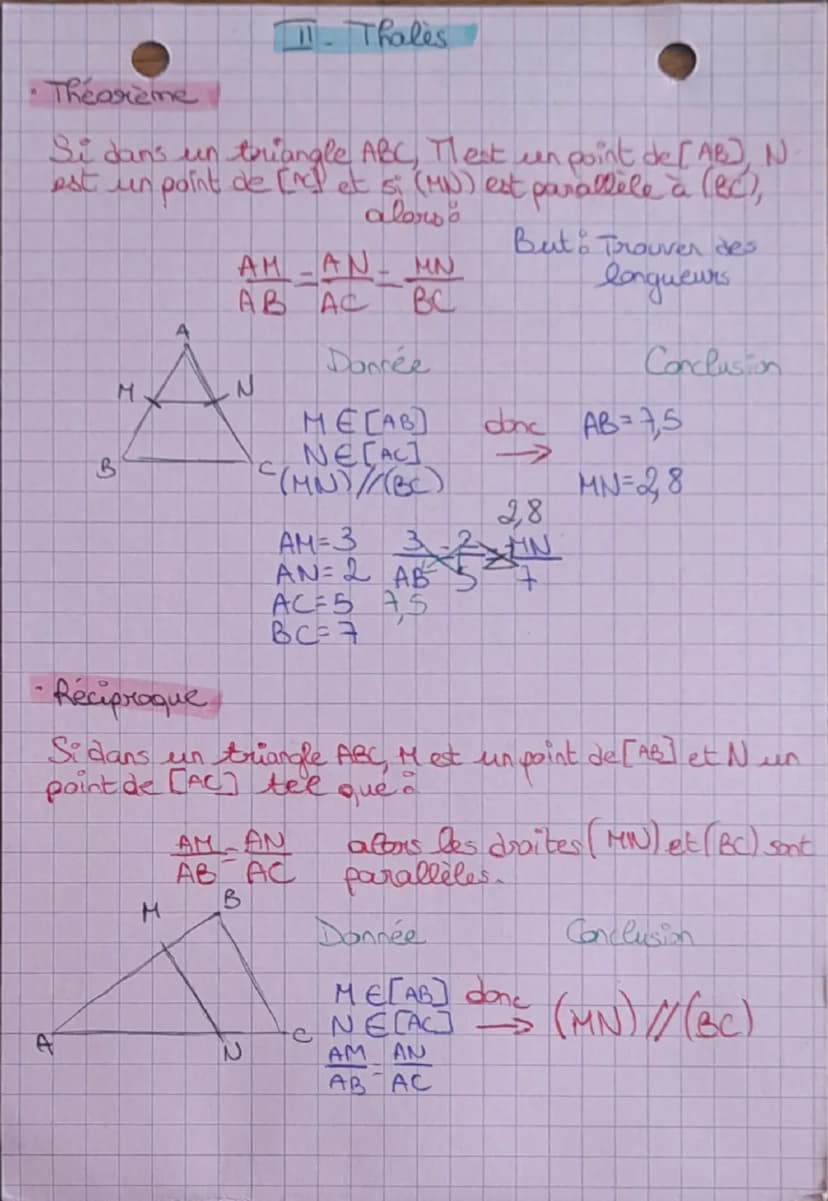 II - Thalès
· Théorème
Si dans un triangle ABC, M est un point de [AB], N
est un point de [AC] et si (MN) est parallèle à (BC),
alors :
But : Trouver des
longueurs
AM/AB = AN/AC = MN/BC
A
M N
B C
Donnée Conclusion
M ∈ [AB] donc AB = 7,5
N ∈ [AC] →
(MN) // (BC) MN = 2,8
2,8
AM = 3 3/AB = 2/5 = MN/7
AN = 2
AC = 5 7,5
BC = 7
· Réciproque
Si dans un triangle ABC, M est un point de [AB] et N un
point de [AC] tel que :
AM/AB = AN/AC alors les droites (MN) et (BC) sont
parallèles.
M B
A N C
Donnée Conclusion
M ∈ [AB] donc
N ∈ [AC] → (MN) // (BC)
AM/AB = AN/AC